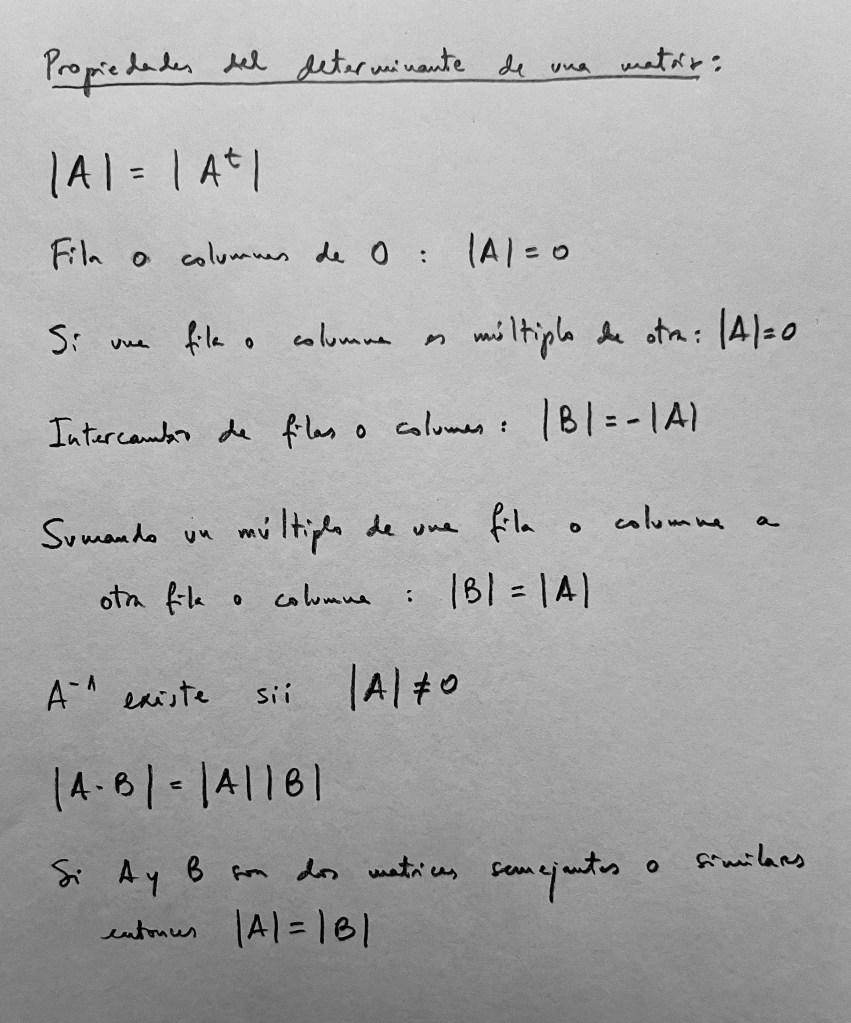 Propiedades del determinante de una matriz:
|A| = |Aᵗ|
Fila o columnas de 0 : |A| = 0
Si una fila o columna es múltiplo de otra: |A|=0
Intercambio de filas o columnas : |B| = -|A|
Sumando un múltiplo de una fila o columna a
otra fila o columna : |B| = |A|
A⁻¹ existe sii |A| ≠ 0
|A·B| = |A||B|
Si A y B son dos matrices semejantes o similares
entonces |A| = |B|